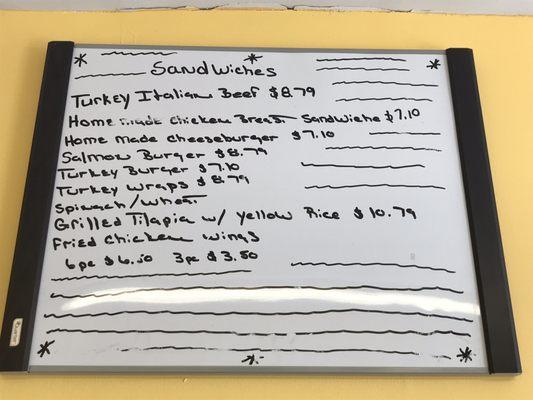 Sandwiches
Turkey Italian Beef $8.79
Home made Chicken Breast Sandwiche $7.10
Home made cheeseburger $7.10
Salmon Burger $8.79
Turkey Burger $7.10
Turkey wraps $8.79
Spinach/wheat
Grilled Tilapia w/ yellow Rice $10.79
Fried chicken wings
6pc $6.50 3pc $3.50